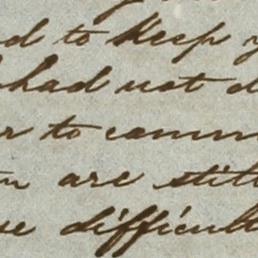 to keep
had not
to comm
are still
difficult